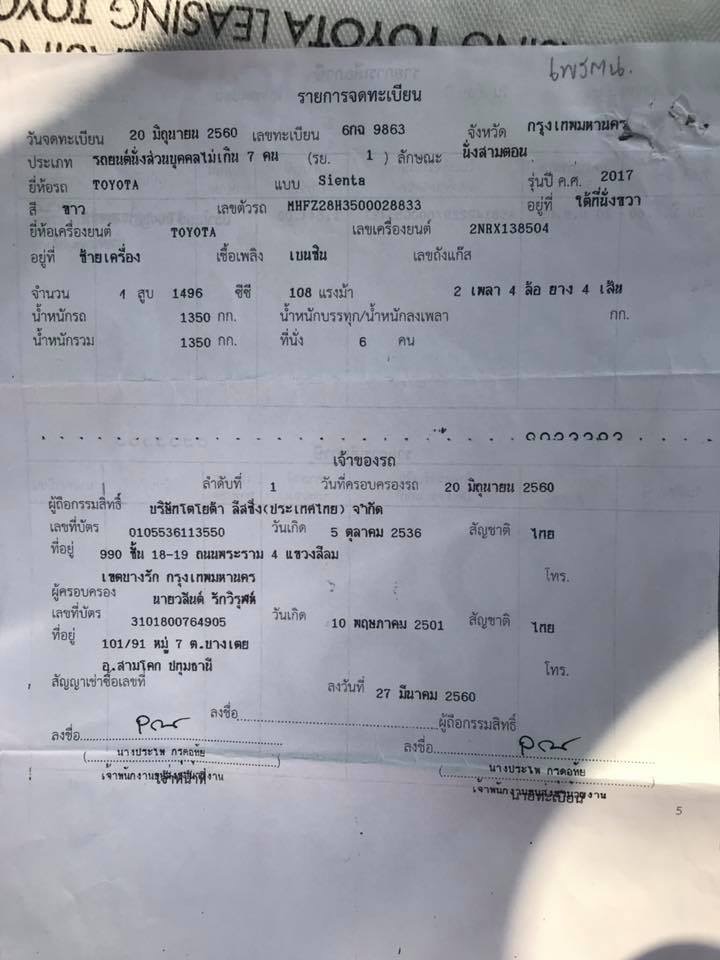 SING TOYOTA LEASING TOYO
เพรฅน.
รายการจดทะเบียน
วันจดทะเบียน 20 มิถุนายน 2560 เลขทะเบียน 6กจ 9863 จังหวัด กรุงเทพมหานคร
ประเภท รถยนต์นั่งส่วนบุคคลไม่เกิน 7 คน (รย. 1 ) ลักษณะ นั่งสามตอน
ยี่ห้อรถ TOYOTA แบบ Sienta รุ่นปี ค.ศ. 2017
สี ขาว เลขตัวรถ MHFZ28H3500028833 อยู่ที่ ใต้ที่นั่งขวา
ยี่ห้อเครื่องยนต์ TOYOTA เลขเครื่องยนต์ 2NRX138504
อยู่ที่ ซ้ายเครื่อง เชื้อเพลิง เบนซิน เลขถังแก๊ส
จำนวน 4 สูบ 1496 ซีซี 108 แรงม้า 2 เพลา 4 ล้อ ยาง 4 เส้น
น้ำหนักรถ 1350 กก. น้ำหนักบรรทุก/น้ำหนักลงเพลา กก.
น้ำหนักรวม 1350 กก. ที่นั่ง 6 คน
เจ้าของรถ
ลำดับที่ 1 วันที่ครอบครองรถ 20 มิถุนายน 2560
ผู้ถือกรรมสิทธิ์ บริษัทโตโยต้า ลีสซิ่ง(ประเทศไทย) จำกัด
เลขที่บัตร 0105536113550 วันเกิด 5 ตุลาคม 2536 สัญชาติ ไทย
ที่อยู่ 990 ชั้น 18-19 ถนนพระราม 4 แขวงสีลม
เขตบางรัก กรุงเทพมหานคร โทร.
ผู้ครอบครอง นายวสันต์ รักวิรุฬห์
เลขที่บัตร 3101800764905 วันเกิด 10 พฤษภาคม 2501 สัญชาติ ไทย
ที่อยู่ 101/91 หมู่ 7 ต.บางเตย
อ.สามโคก ปทุมธานี โทร.
สัญญาเช่าซื้อเลขที่ ลงวันที่ 27 มีนาคม 2560
ลงชื่อ ผู้ถือกรรมสิทธิ์
ลงชื่อ ลงชื่อ
นางประไพ กรดอุทัย นางประไพ กรดอุทัย
เจ้าหน้าที่ นายทะเบียน
5